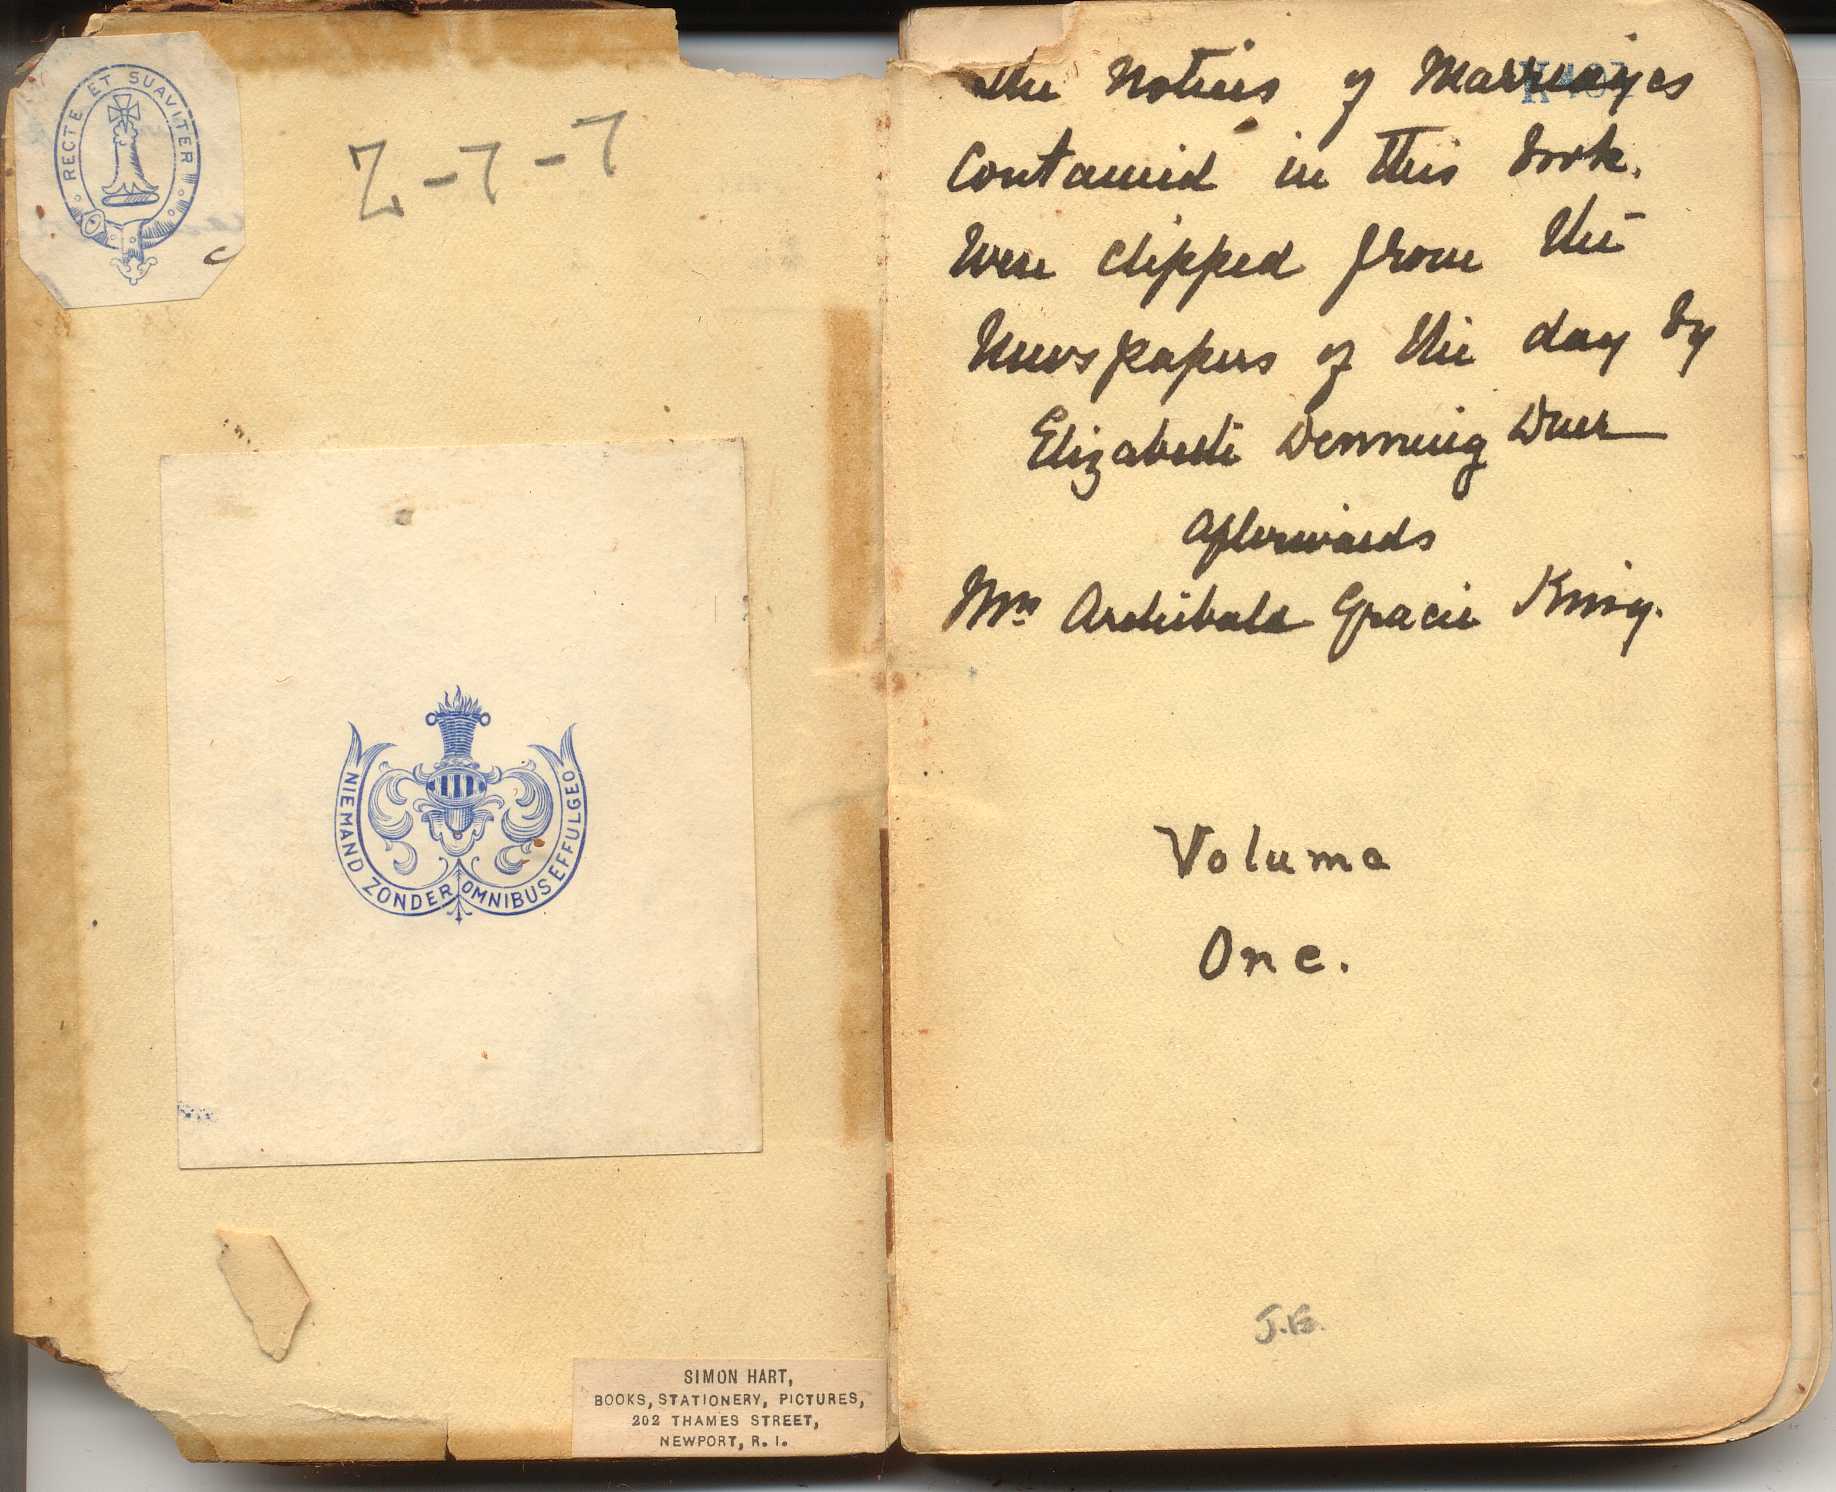 RECTE ET SUAVITER
Z-7-7
NIEMAND ZONDER OMNIBUS EFFULGEO
SIMON HART,
BOOKS, STATIONERY, PICTURES,
202 THAMES STREET,
NEWPORT, R. I.
The Notices of Marriages
Contained in this book.
Were clipped from the
Newspapers of the day by
Elizabeth Denning Duer
afterwards
Mrs Archibald Gracie King.
Volume
One.